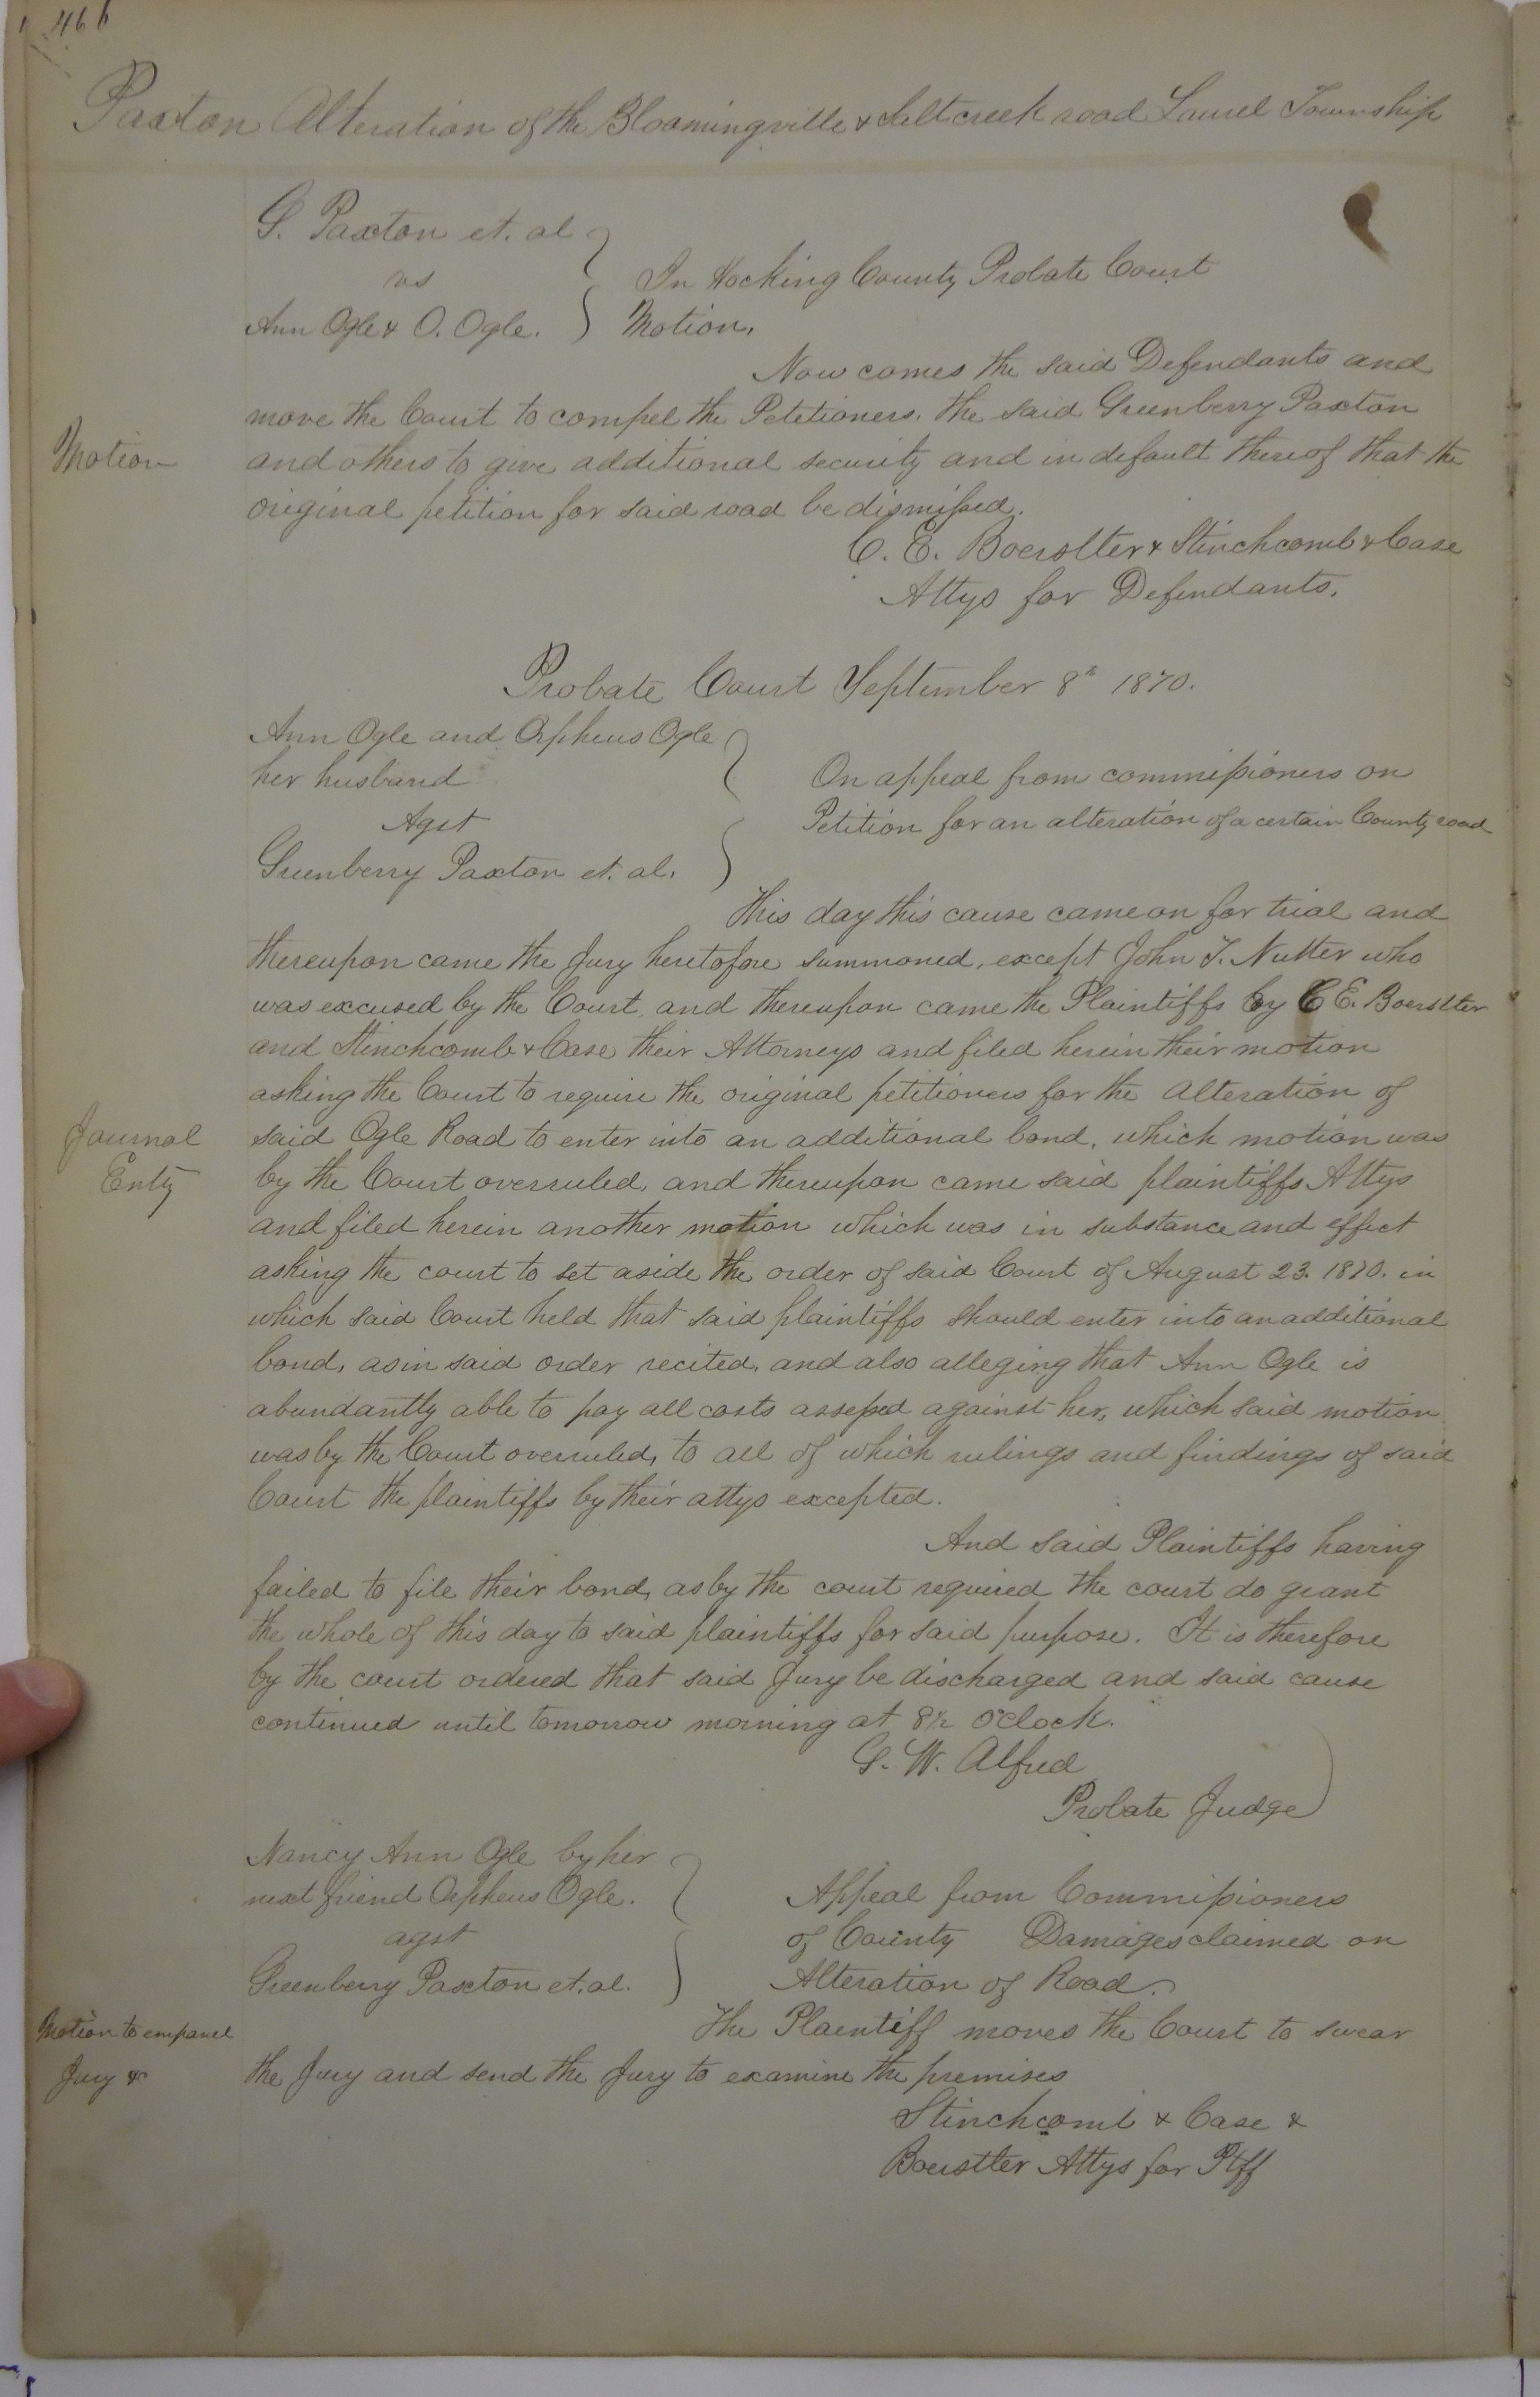 466
Paxton Alteration of the Bloomingville & Saltcreek road Laurel Township
G. Paxton et. al
vs
Ann Ogle & O. Ogle.
In Hocking County Probate Court
Motion.
Now comes the said Defendants and
move the Court to compel the Petitioners. the said Greenberry Paxton
Motion
and others to give additional security and in default thereof that the
original petition for said road be dismissed.
C. E. Boerstler & Stinchcomb & Case
Attys for Defendants.
Probate Court September 8th 1870.
Ann Ogle and Orpheus Ogle
her husband
Agst
Greenberry Paxton et. al.
On appeal from commissioners on
Petition for an alteration of a certain County road
This day this cause came on for trial and
thereupon came the Jury heretofore summoned, except John T. Nutter who
was excused by the Court, and thereupon came the Plaintiffs by C E. Boerstler
and Stinchcomb & Case their Attorneys and filed herein their motion
asking the Court to require the original petitioners for the alteration of
Journal
Enty
said Ogle Road to enter into an additional bond, which motion was
by the Court overruled, and thereupon came said plaintiffs Attys
and filed herein another motion which was in substance and effect
asking the court to set aside the order of said Court of August 23. 1870. in
which said Court held that said plaintiffs should enter into an additional
bond, as in said order recited, and also alleging that Ann Ogle is
abundantly able to pay all costs assessed against her, which said motion
was by the Court overruled, to all of which rulings and findings of said
Court the plaintiffs by their attys excepted.
And said Plaintiffs having
failed to file their bond, as by the court required the court do grant
the whole of this day to said plaintiffs for said purpose. It is therefore
by the court ordered that said Jury be discharged and said cause
continued until tomorrow morning at 8½ O'clock.
G. W. Alfred
Probate Judge
Nancy Ann Ogle by her
next friend Orpheus Ogle.
agst
Greenberry Paxton et. al.
Appeal from Commissioners
of County Damages claimed on
Alteration of Road.
Motion to empanel
Jury &c
The Plaintiff moves the Court to swear
the Jury and send the Jury to examine the premises
Stinchcomb & Case &
Boerstler Attys for Plff